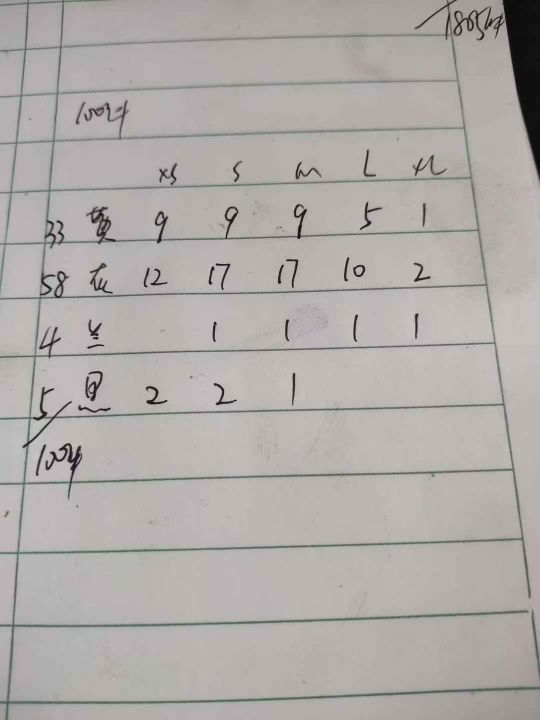 100件
XS S M L XL
33 黄 9 9 9 5 1
58 灰 12 17 17 10 2
4 兰 1 1 1 1
5 黑 2 2 1
100件